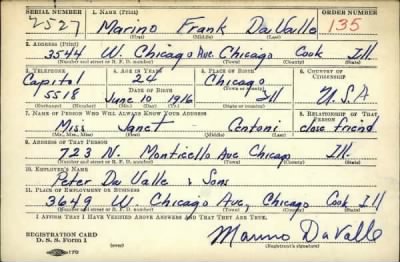 SERIAL NUMBER 1. NAME (Print) ORDER NUMBER
2527 Marino Frank DaValle 135
(First) (Middle) (Last)
2. ADDRESS (Print)
3544 W. Chicago Ave. Chicago Cook Ill.
(Number and street or R. F. D. number) (Town) (County) (State)
3. TELEPHONE 4. AGE IN YEARS 5. PLACE OF BIRTH 6. COUNTRY OF CITIZENSHIP
Capitol 24 Chicago
DATE OF BIRTH
5518 June 10 1916 Ill U.S.A
(Exchange) (Number) (Mo.) (Day) (Yr.) (State or country)
7. NAME OF PERSON WHO WILL ALWAYS KNOW YOUR ADDRESS 8. RELATIONSHIP OF THAT PERSON
Miss Janet Centoni close friend
(Mr., Mrs., Miss) (First) (Middle) (Last)
9. ADDRESS OF THAT PERSON
723 N. Monticello Ave Chicago Ill.
(Number and street or R. F. D. number) (Town) (County) (State)
10. EMPLOYER'S NAME
Peter Da Valle & Sons
11. PLACE OF EMPLOYMENT OR BUSINESS
3649 W. Chicago Ave, Chicago Cook Ill
(Number and street or R. F. D. number) (Town) (County) (State)
I AFFIRM THAT I HAVE VERIFIED ABOVE ANSWERS AND THAT THEY ARE TRUE.
REGISTRATION CARD
D. S. S. Form 1 Marino DaValle
(Registrant's signature)